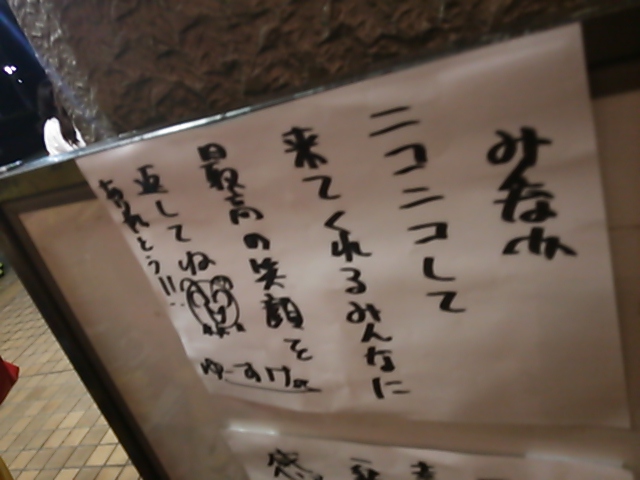 みんなが
ニコニコして
来てくれるみんなに
最高の笑顔を
返してね
ありがとう!!
ゆーすけ